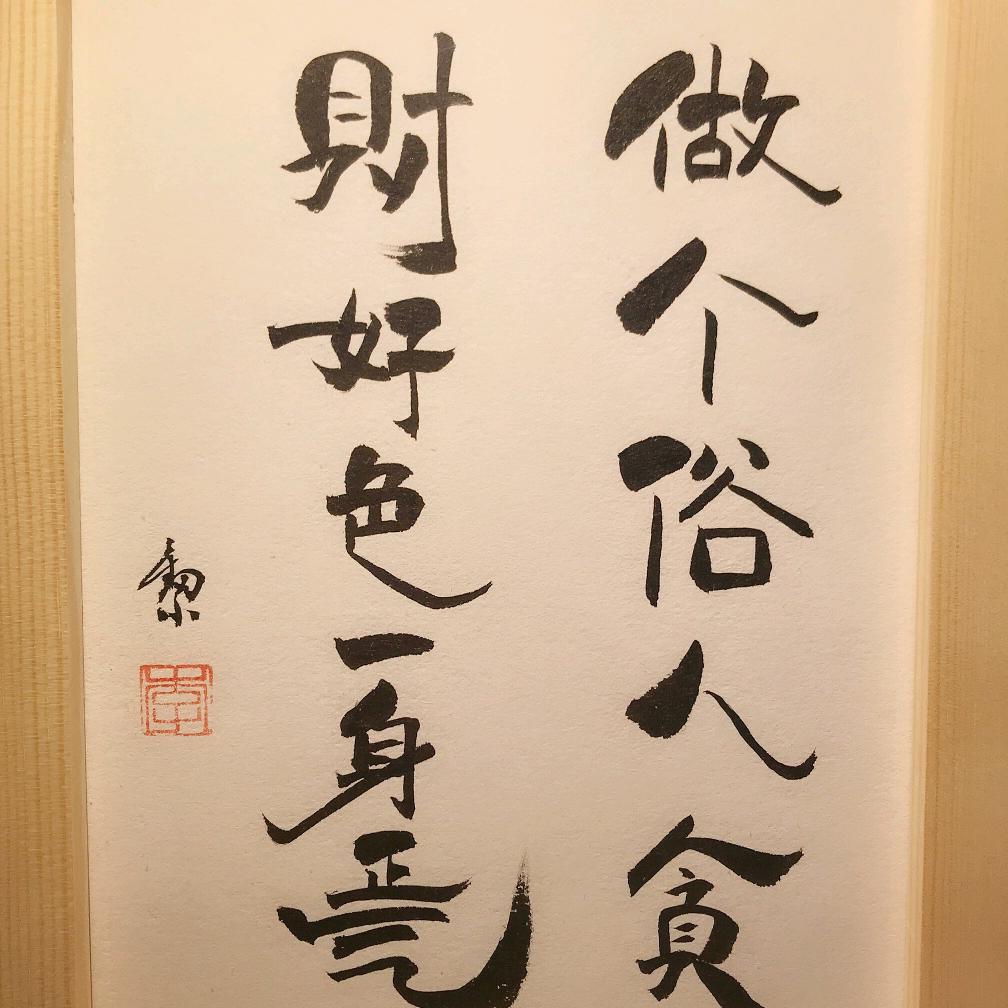 做个俗人貪
財好色一身正气